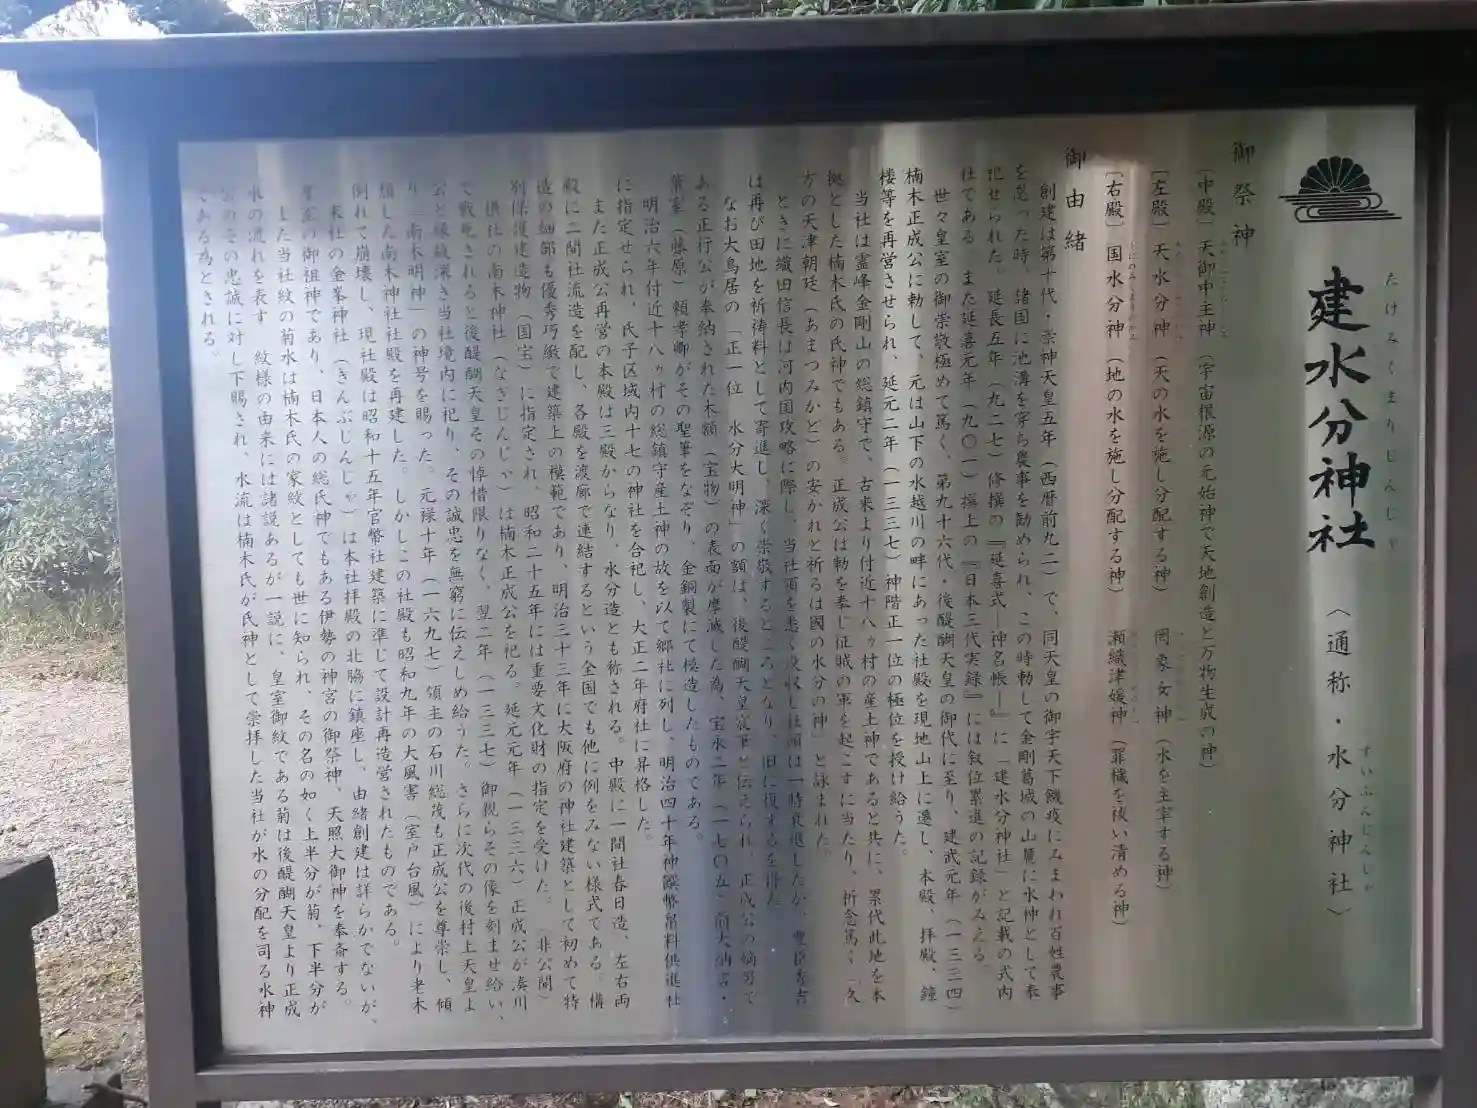 建水分神社 〈通称・水分神社〉
たけみくまりじんじゃ
すいぶんじんじゃ
御祭神
〔中殿〕天御中主神 (宇宙根源の元始神で天地創造と万物生成の神)
〔左殿〕天水分神 (天の水を施し分配する神) 罔象女神 (水を主宰する神)
〔右殿〕国水分神 (地の水を施し分配する神) 瀬織津媛神 (罪穢を祓い清める神)
御由緒
創建は第十代・崇神天皇五年(西暦前九二)で、同天皇の御宇天下饑疫にみまわれ百姓農事
を怠った時、諸国に池溝を穿ち農事を勧められ、この時勅して金剛葛城の山麓に水神として奉
祀せられた。延長五年(九二七)修撰の『延喜式―神名帳―』に「建水分神社」と記載の式内
社である。また延喜元年(九〇一)撰上の『日本三代実録』には叙位累進の記録がみえる。
世々皇室の御崇敬極めて篤く、第九十六代・後醍醐天皇の御代に至り、建武元年(一三三四)
楠木正成公に勅して、元は山下の水越川の畔にあった社殿を現地山上に遷し、本殿、拝殿、鐘
楼等を再営させられ、延元二年(一三三七)神階正一位の極位を授け給うた。
当社は霊峰金剛山の総鎮守で、古来より付近十八ヶ村の産土神であると共に、累代此地を本
拠とした楠木氏の氏神でもある。正成公は勅を奉じ征賊の軍を起こすに当たり、祈念篤く「久
方の天津朝廷(あまつみかど)の安かれと祈るは國の水分の神」と詠まれた。
ときに織田信長は河内国攻略に際し、当社領を悉く没収し社頭は一時衰退したが、豊臣秀吉
は再び田地を祈祷料として寄進し、深く崇敬するところとなり、旧に復するを得た。
なお大鳥居の「正一位 水分大明神」の額は、後醍醐天皇宸筆と伝えられ、正成公の嫡男で
ある正行公が奉納された木額(宝物)の表面が摩滅した為、宝永二年(一七〇五)前大納言・
葉室(藤原)頼孝卿がその聖筆をなぞり、金銅製にて模造したものである。
明治六年付近十八ヶ村の総鎮守産土神の故を以て郷社に列し、明治四十年神饌幣帛料供進社
に指定せられ、氏子区域内十七の神社を合祀し、大正二年府社に昇格した。
また正成公再営の本殿は三殿からなり、水分造とも称される。中殿に一間社春日造、左右両
殿に二間社流造を配し、各殿を渡廊で連結するという全国でも他に例をみない様式である。構
造の細部も優秀巧緻で建築上の模範であり、明治三十三年に大阪府の神社建築として初めて特
別保護建造物(国宝)に指定され、昭和二十五年には重要文化財の指定を受けた。(非公開)
摂社の南木神社(なぎじんじゃ)は楠木正成公を祀る。延元元年(一三三六)正成公が湊川
で戦死されると後醍醐天皇その悼惜限りなく、翌二年(一三三七)御親らその像を刻ませ給い、
公と縁故深き当社境内に祀り、その誠忠を無窮に伝えしめ給うた。さらに次代の後村上天皇よ
り「南木明神」の神号を賜った。元禄十年(一六九七)領主の石川総茂も正成公を尊崇し、傾
頽した南木神社社殿を再建した。しかしこの社殿も昭和九年の大風害(室戸台風)により老木
倒れて崩壊し、現社殿は昭和十五年官幣社建築に準じて設計再造営されたものである。
末社の金峯神社(きんぶじんじゃ)は本社拝殿の北脇に鎮座し、由緒創建は詳らかでないが、
皇室の御祖神であり、日本人の総氏神でもある伊勢の神宮の御祭神、天照大御神を奉斎する。
した当社紋の菊水は楠木氏の家紋としても世に知られ、その名の如く上半分が菊、下半分が
水の流れを表す 紋様の由来には諸説あるが一説に、皇室御紋である菊は後醍醐天皇より正成
公のその忠誠に対し下賜され、水流は楠木氏が氏神として崇拝した当社が水の分配を司る水神
である為とされる。